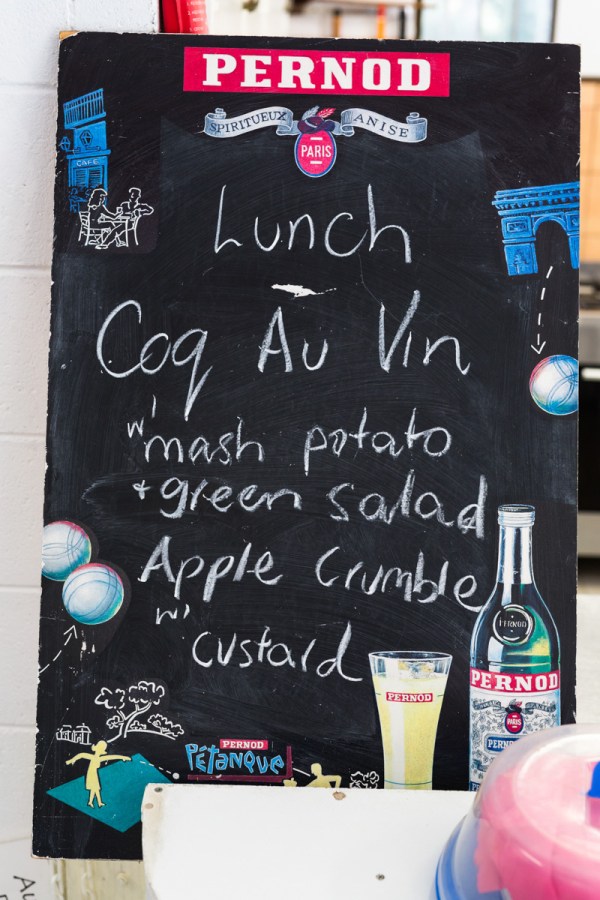 PERNOD
SPIRITUEUX ANISE
PARIS
CAFE
Lunch
Coq Au Vin
w' mash potato
+ green salad
Apple Crumble
w' custard
PERNOD
PERNOD
PERNOD
PARIS
PERNOD
PERNOD
Pétanque